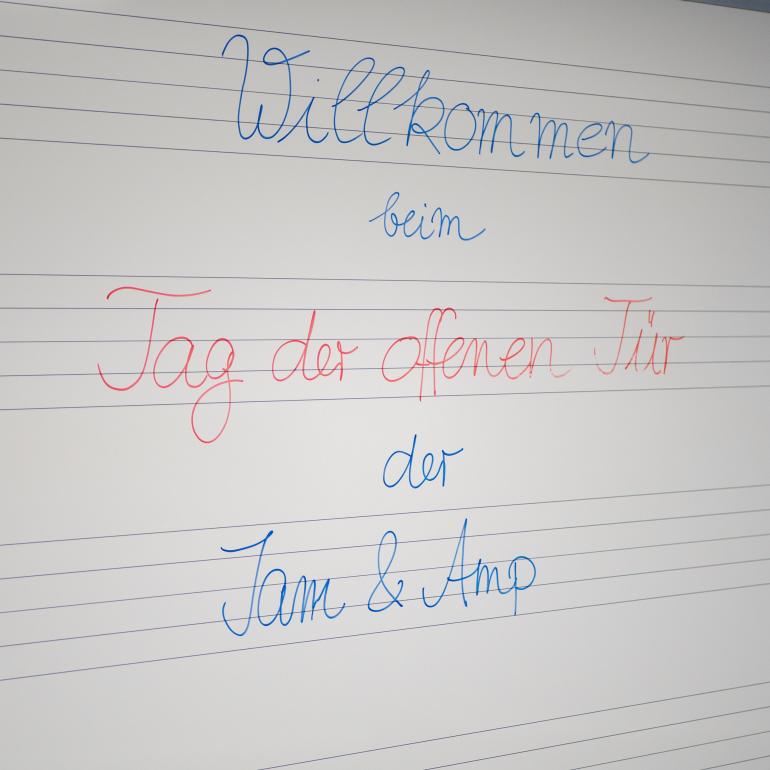 Willkommen
beim
Tag der offenen Tür
der
Jam & Amp